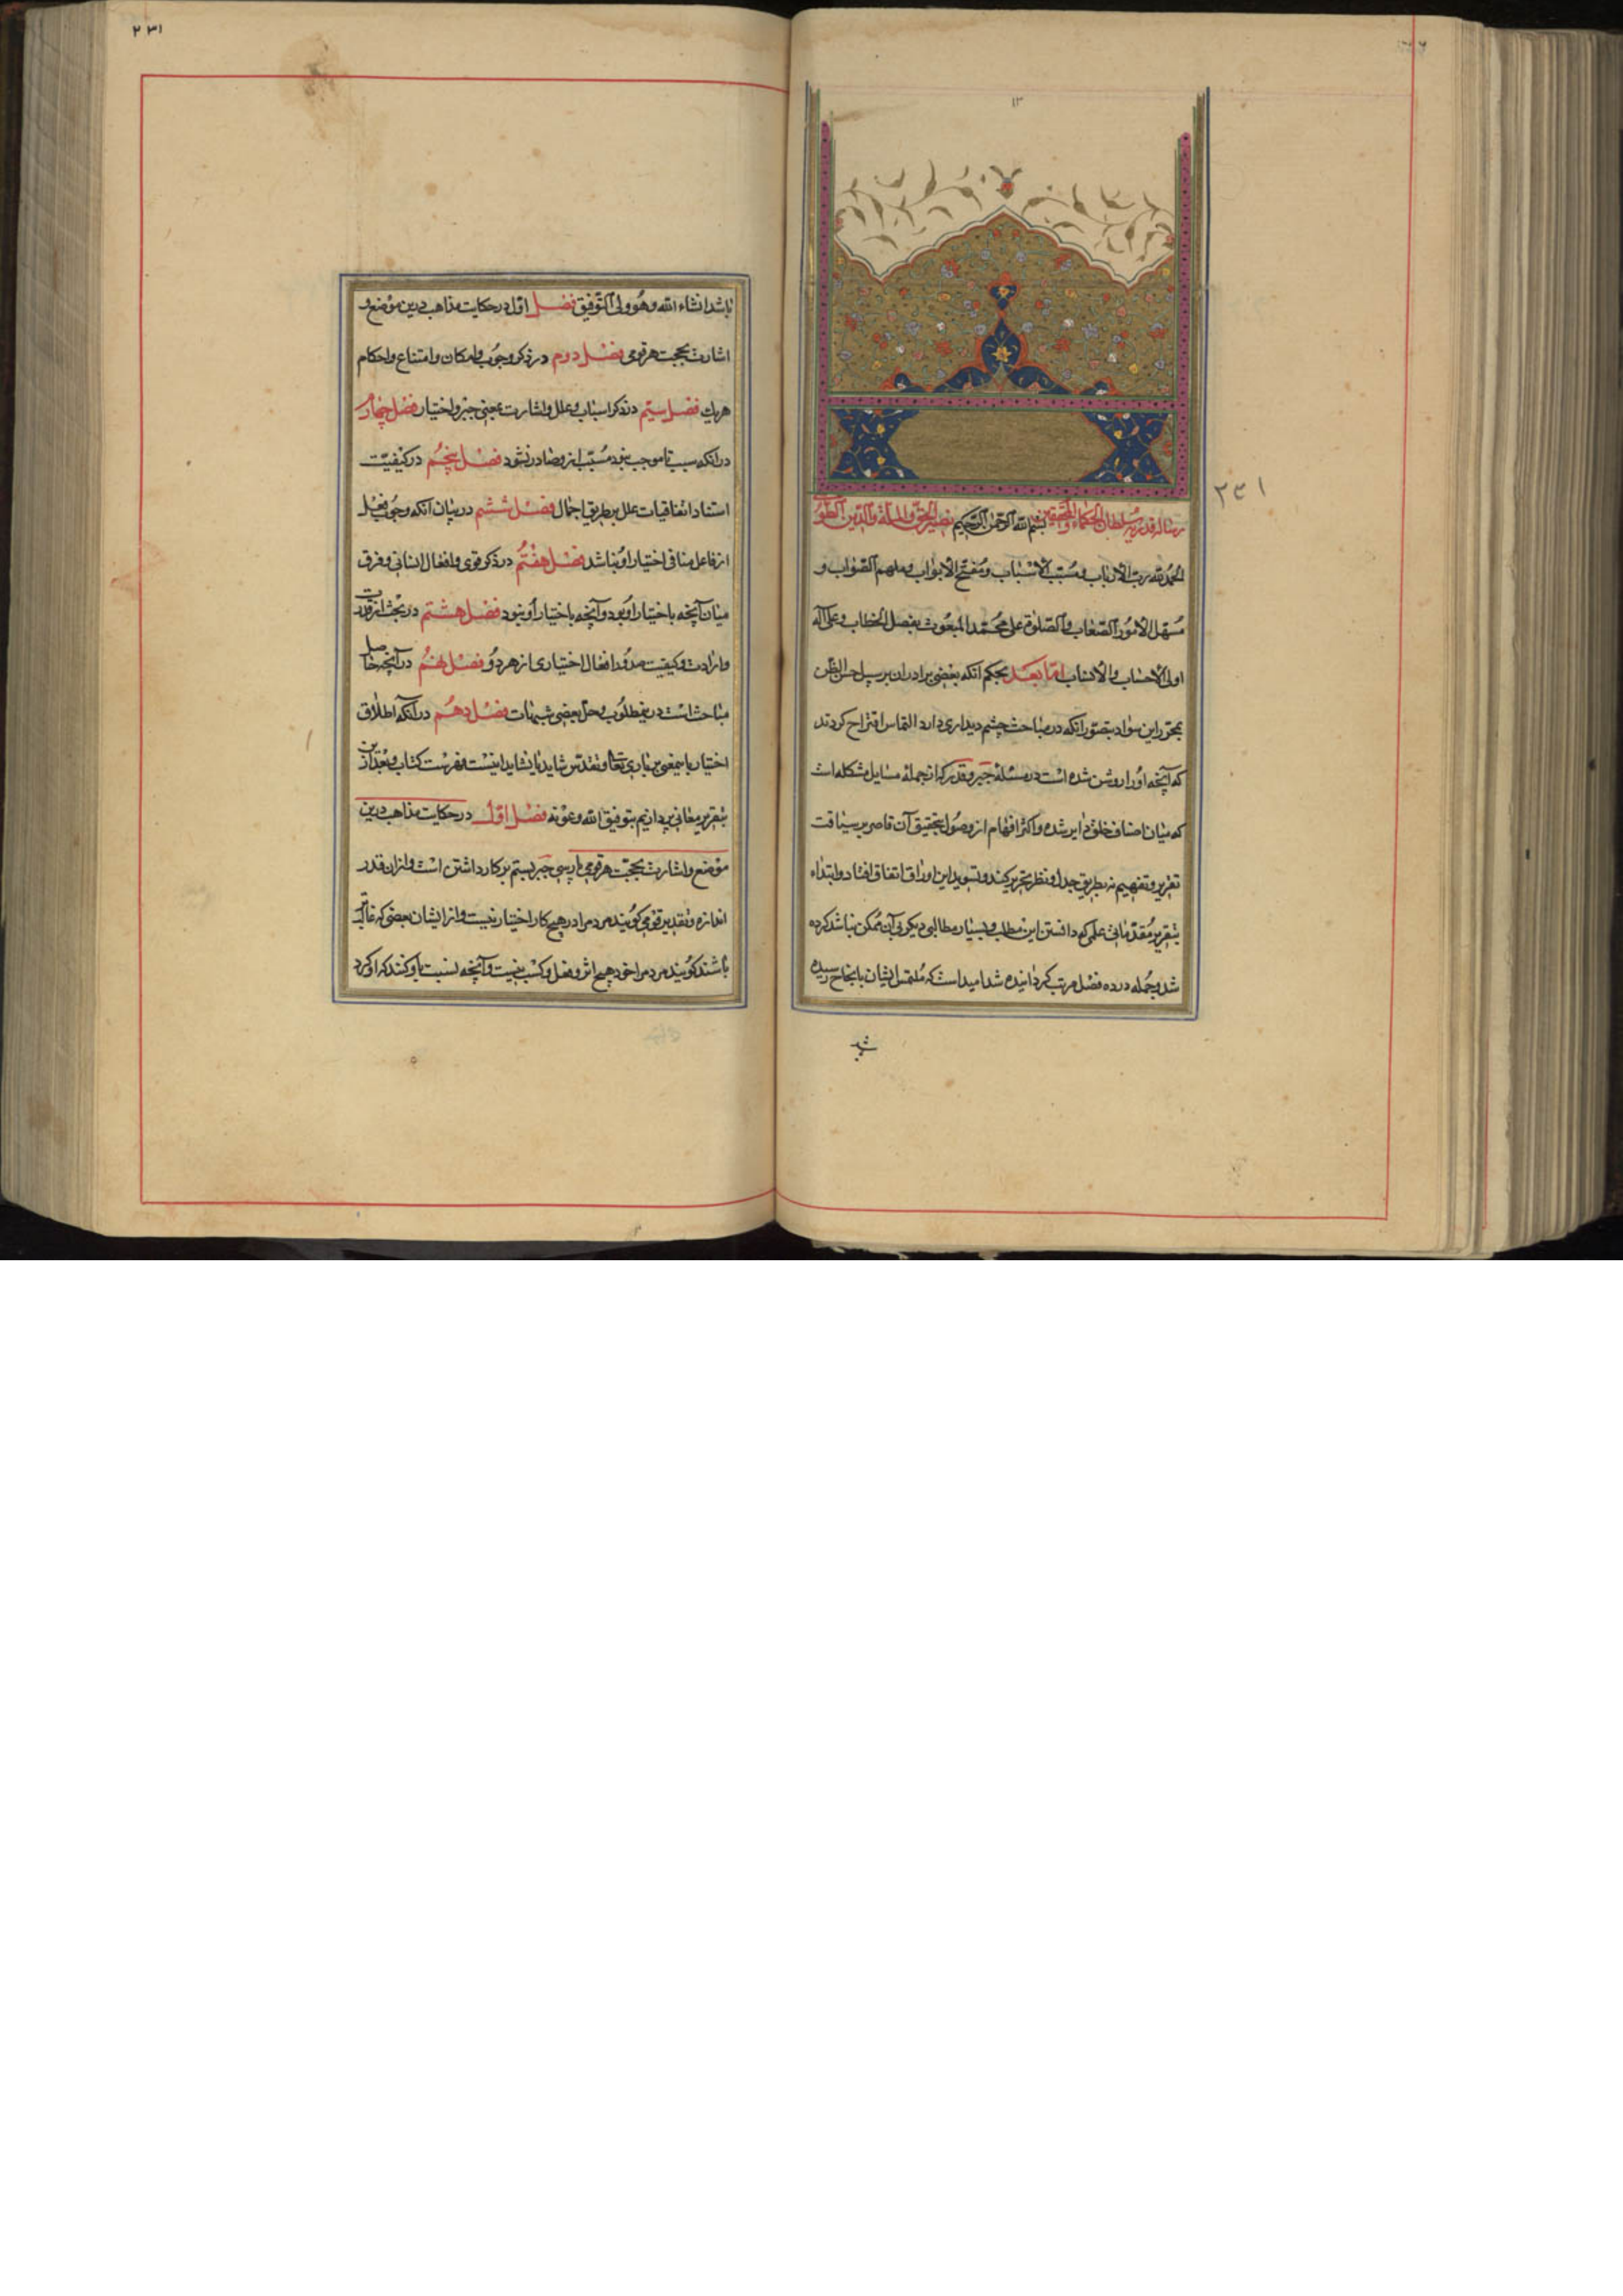 ٢٣١
رساله قدریه سلطان الحکماء والمحققین بسم الله الرحمن الرحیم نصیر الحق والملة والدین الطوسی
الحمدلله رب الارباب و مسبب الاسباب ومفتح الابواب وملهم الصواب و
مسهل الامور الصعاب والصلوة علی محمد المبعوث بفصل الخطاب وعلی آله
اولی الاحساب والانساب اما بعد بحکم انکه بعضی برادران بر سبیل حسن الظن
بمحرر این سواد بتصور انکه در مباحث چشم دیداری دارد التماس اقتراح کردند
که آنچه او را روشن شده است در مسئلهٔ جبر و قدر که از جملهٔ مسایل مشکله است
که میان اصناف خلق دایر شده و اکثر افهام از وصول بتحقیق آن قاصر بر سیاقت
تقریر و تفهیم نه بطریق جدل و نظر تحریر کند و تسوید این اوراق اتفاق افتاد و ابتداء
بتقریر مقدماتی علمی که دانستن این مطلب و بسیار مطالبی دیگر بی آن ممکن نباشد کرده
شد و جمله در ده فصل مرتب کردانیده شد امید است که ملتمس ایشان بانجاح رسیده
٢٣١
باشد انشاء الله وهو ولی التوفیق فصل اول در حکایت مذاهب درین موضع و
اشارت بحجت هر قومی فصل دوم در ذکر وجوب و امکان و امتناع و احکام
هر یک فصل سیم در ذکر اسباب و علل و اشارت بمعنی جبر و اختیار فصل چهارم
در انکه سبب تا موجب نبود مسبب از و صادر نشود فصل پنجم در کیفیت
استناد اتفاقیات علل بر طریق اجمال فصل ششم در بیان آنکه وجوب فعل
از فاعل منافی اختیار او نباشد فصل هفتم در ذکر قوی و افعال انسانی و فرق
میان آنچه باختیار او بود و آنچه باختیار او نبود فصل هشتم در بحث از قدرت
و ارادت و کیفیت صدور افعال اختیاری از هر دو فصل نهم در آنچه حاصل
مباحث است درین مطلوب و حل بعضی شبهات فصل دهم در آنکه اطلاق
اختیار باین معنی بر باری تعالی و تقدس شاید یا نشاید اینست فهرست کتاب و بعد ازین
بتقریر معانی پردازیم بتوفیق الله وعونه فصل اول در حکایت مذاهب درین
موضع و اشارت بحجت هر قومی پارسی جبر بستم بر کار داشتن است و از ان قدر
اندازه و تقدیر قومی کویند مردم را در هیچ کار اختیار نیست و از ایشان بعضی که غالب
باشند کویند مردم را خود هیچ اثر و فعل و کسب نیست و آنچه نسبت باو کنند که او کرد